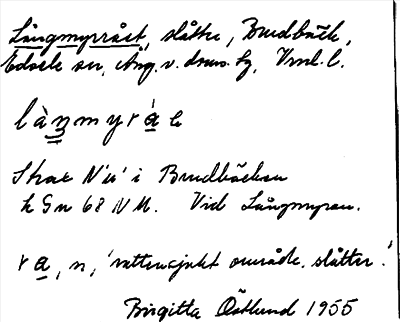 Långmyrråset, slåtter, Brudbäck,
Edsele sn, Ång. v. doms. fg, Vrnl. l.
lànmyrá
Strax N 'ö' i Brudbäcken
k Gn 68 NM. Vid Långmyran.
ra, n, 'vattensjukt område, slåtter.'
Birgitta Östlund 1955